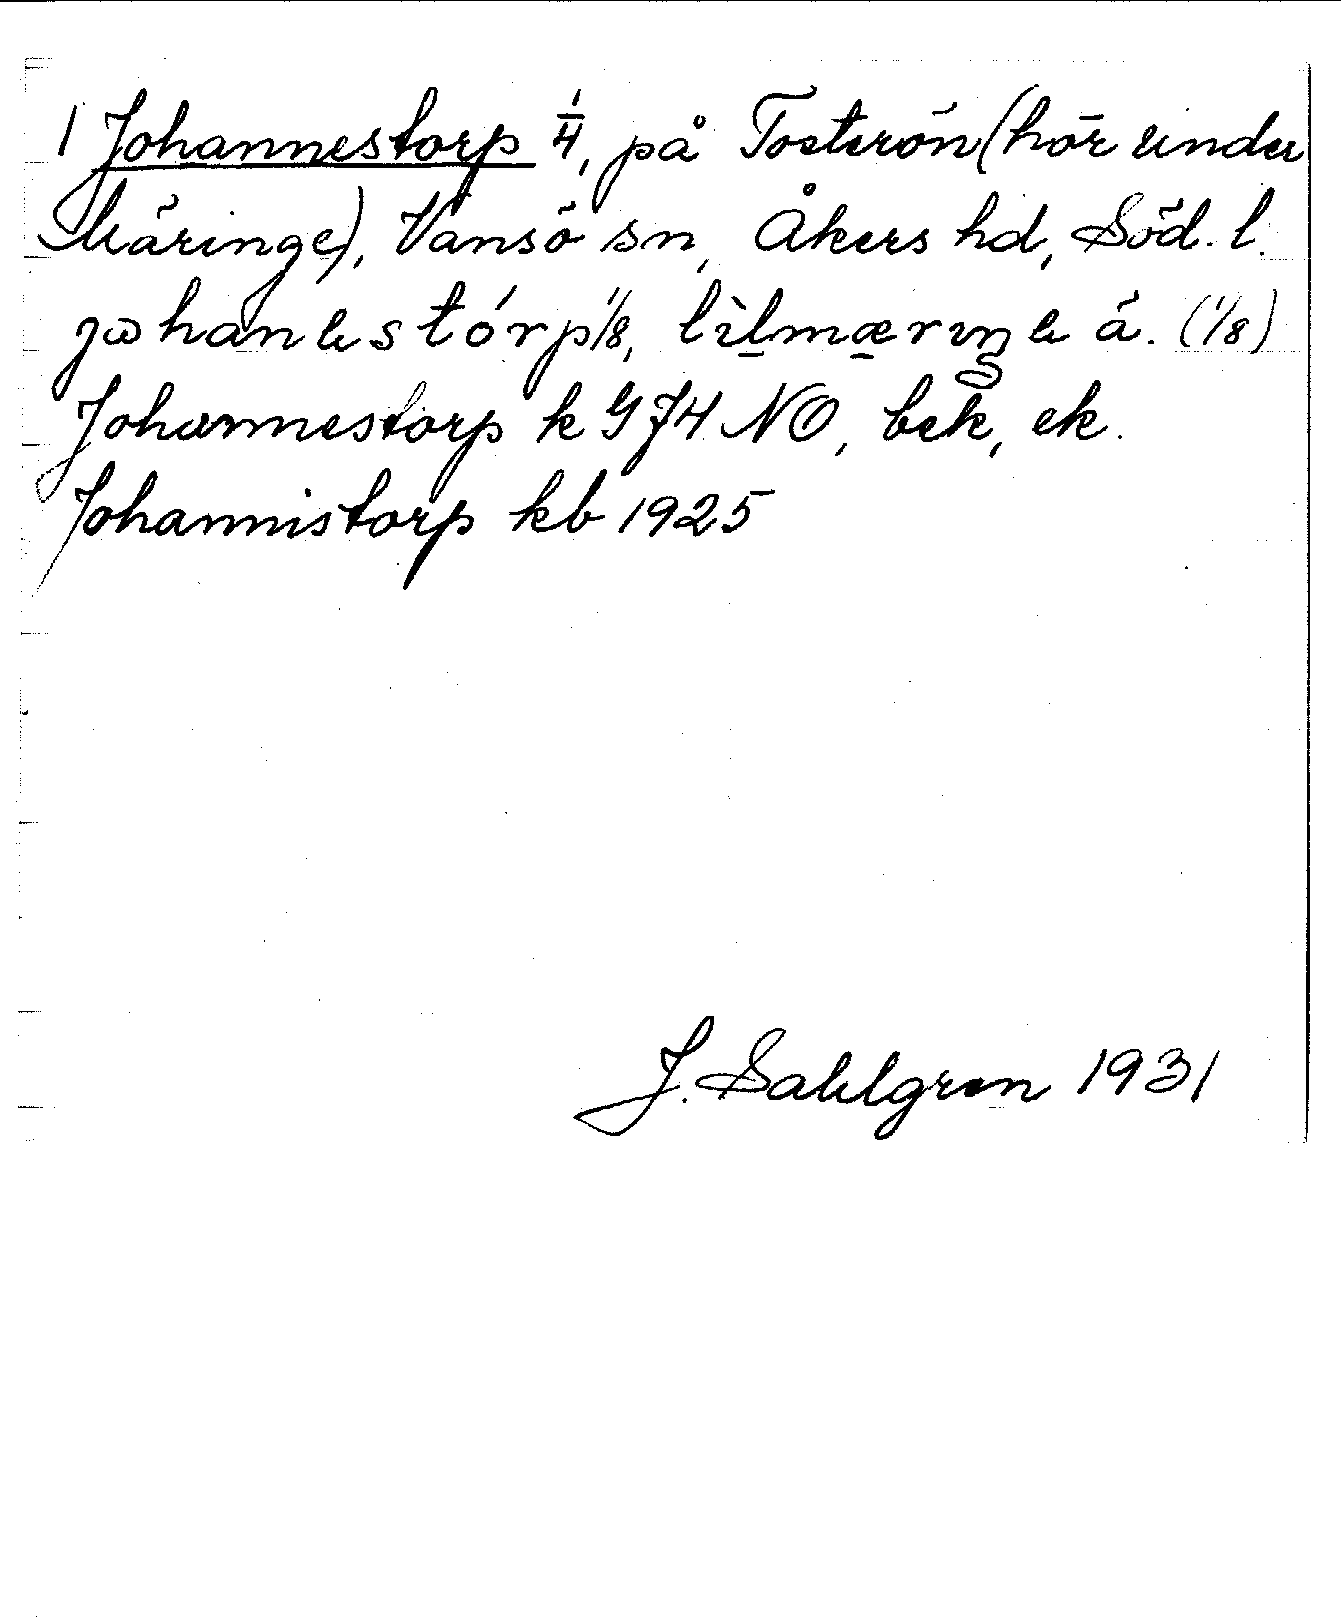 1 Johannestorp 1/4, på Tosterön (hör under
Märinge), Vansö sn, Åkers hd, Söd. l.
johanestórp 1/8, lìlmæriŋe á. (1/8)
Johannestorp k G74 NO, bek, ek.
Johannistorp kb 1925
J. Sahlgren 1931